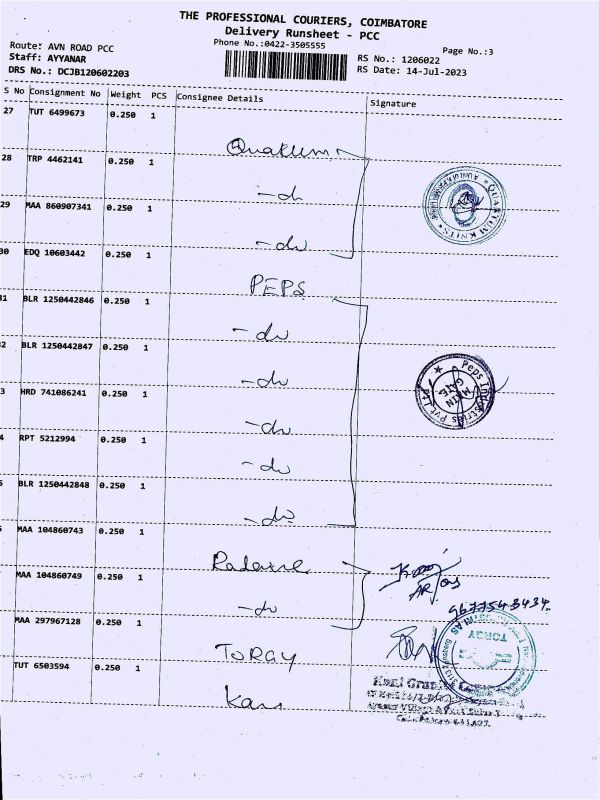 THE PROFESSIONAL COURIERS, COIMBATORE
Delivery Runsheet - PCC
Phone No.:0422-3505555
Page No.:3
Route: AVN ROAD PCC
Staff: AYYANAR
DRS No.: DCJB120602203
RS No.: 1206022
RS Date: 14-Jul-2023
S No Consignment No Weight PCS Consignee Details Signature
27 TUT 6499673 0.250 1
Quatum
28 TRP 4462141 0.250 1
-do
29 MAA 860907341 0.250 1
-do
QUANTUM KNITS
30 EDQ 10603442 0.250 1
PEPS
31 BLR 1250442846 0.250 1
-do
2 BLR 1250442847 0.250 1
-do
Peps Industries Pvt Ltd
MAIN
GATE
3 HRD 741086241 0.250 1
-do
4 RPT 5212994 0.250 1
-do
5 BLR 1250442848 0.250 1
-do
MAA 104860743 0.250 1
MAA 104860749 0.250 1
-do
MAA 297967128 0.250 1
TORGY
TORGY
TUT 6503594 0.250 1